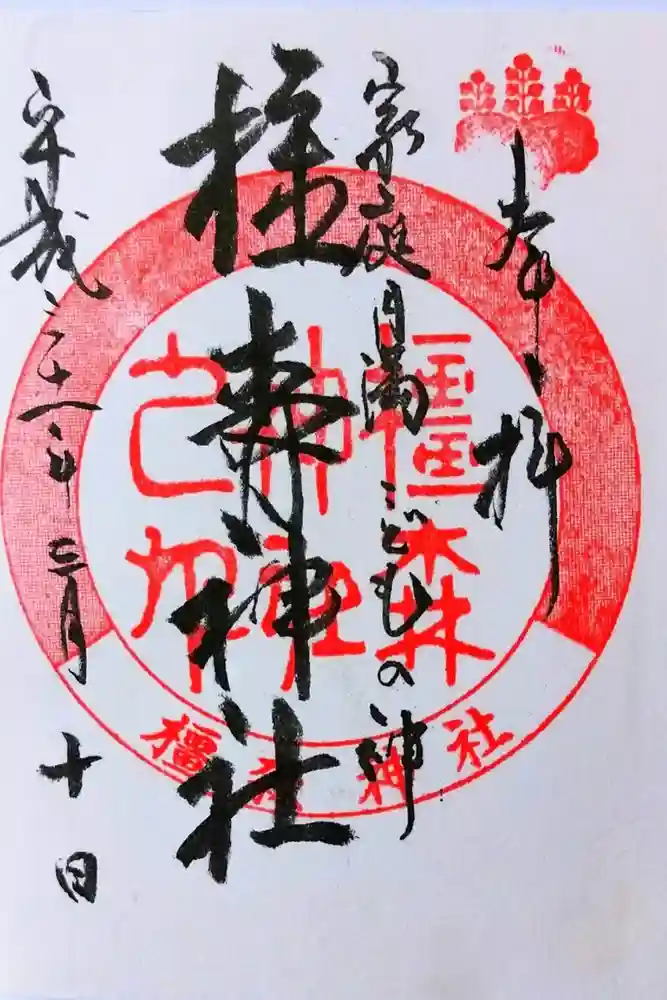 奉拝
家庭円満こどもの神
橿森神社
平成 年三月十日
橿森
神社
橿森神社